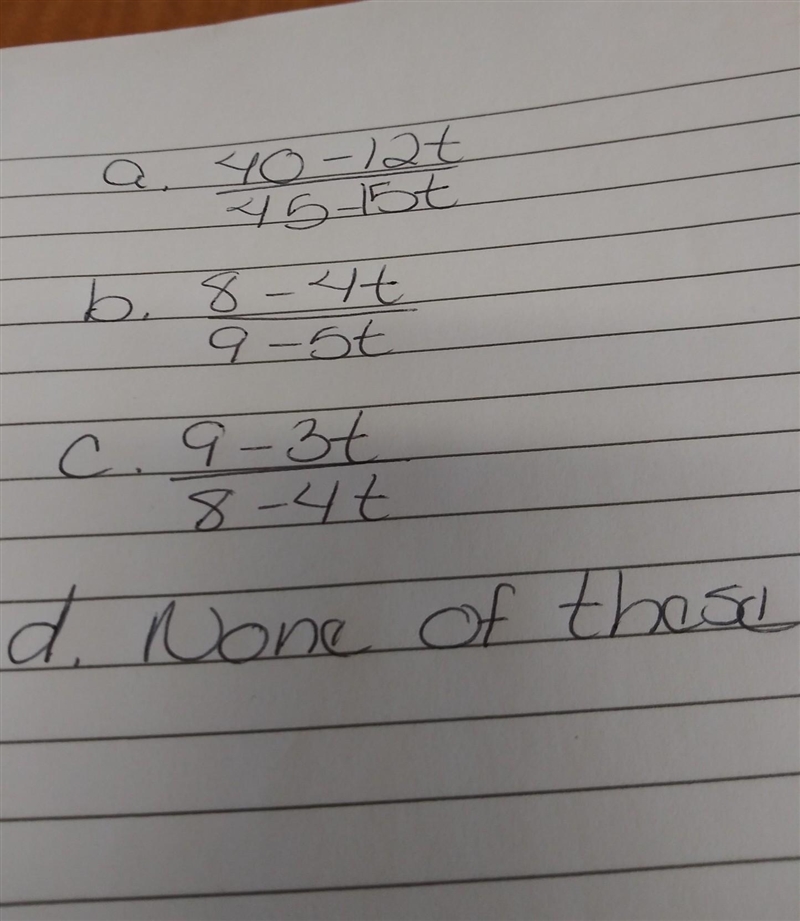 a. 40-12t
45-15t
b. 8-4t
9-5t
c. 9-3t
8-4t
d. None of these